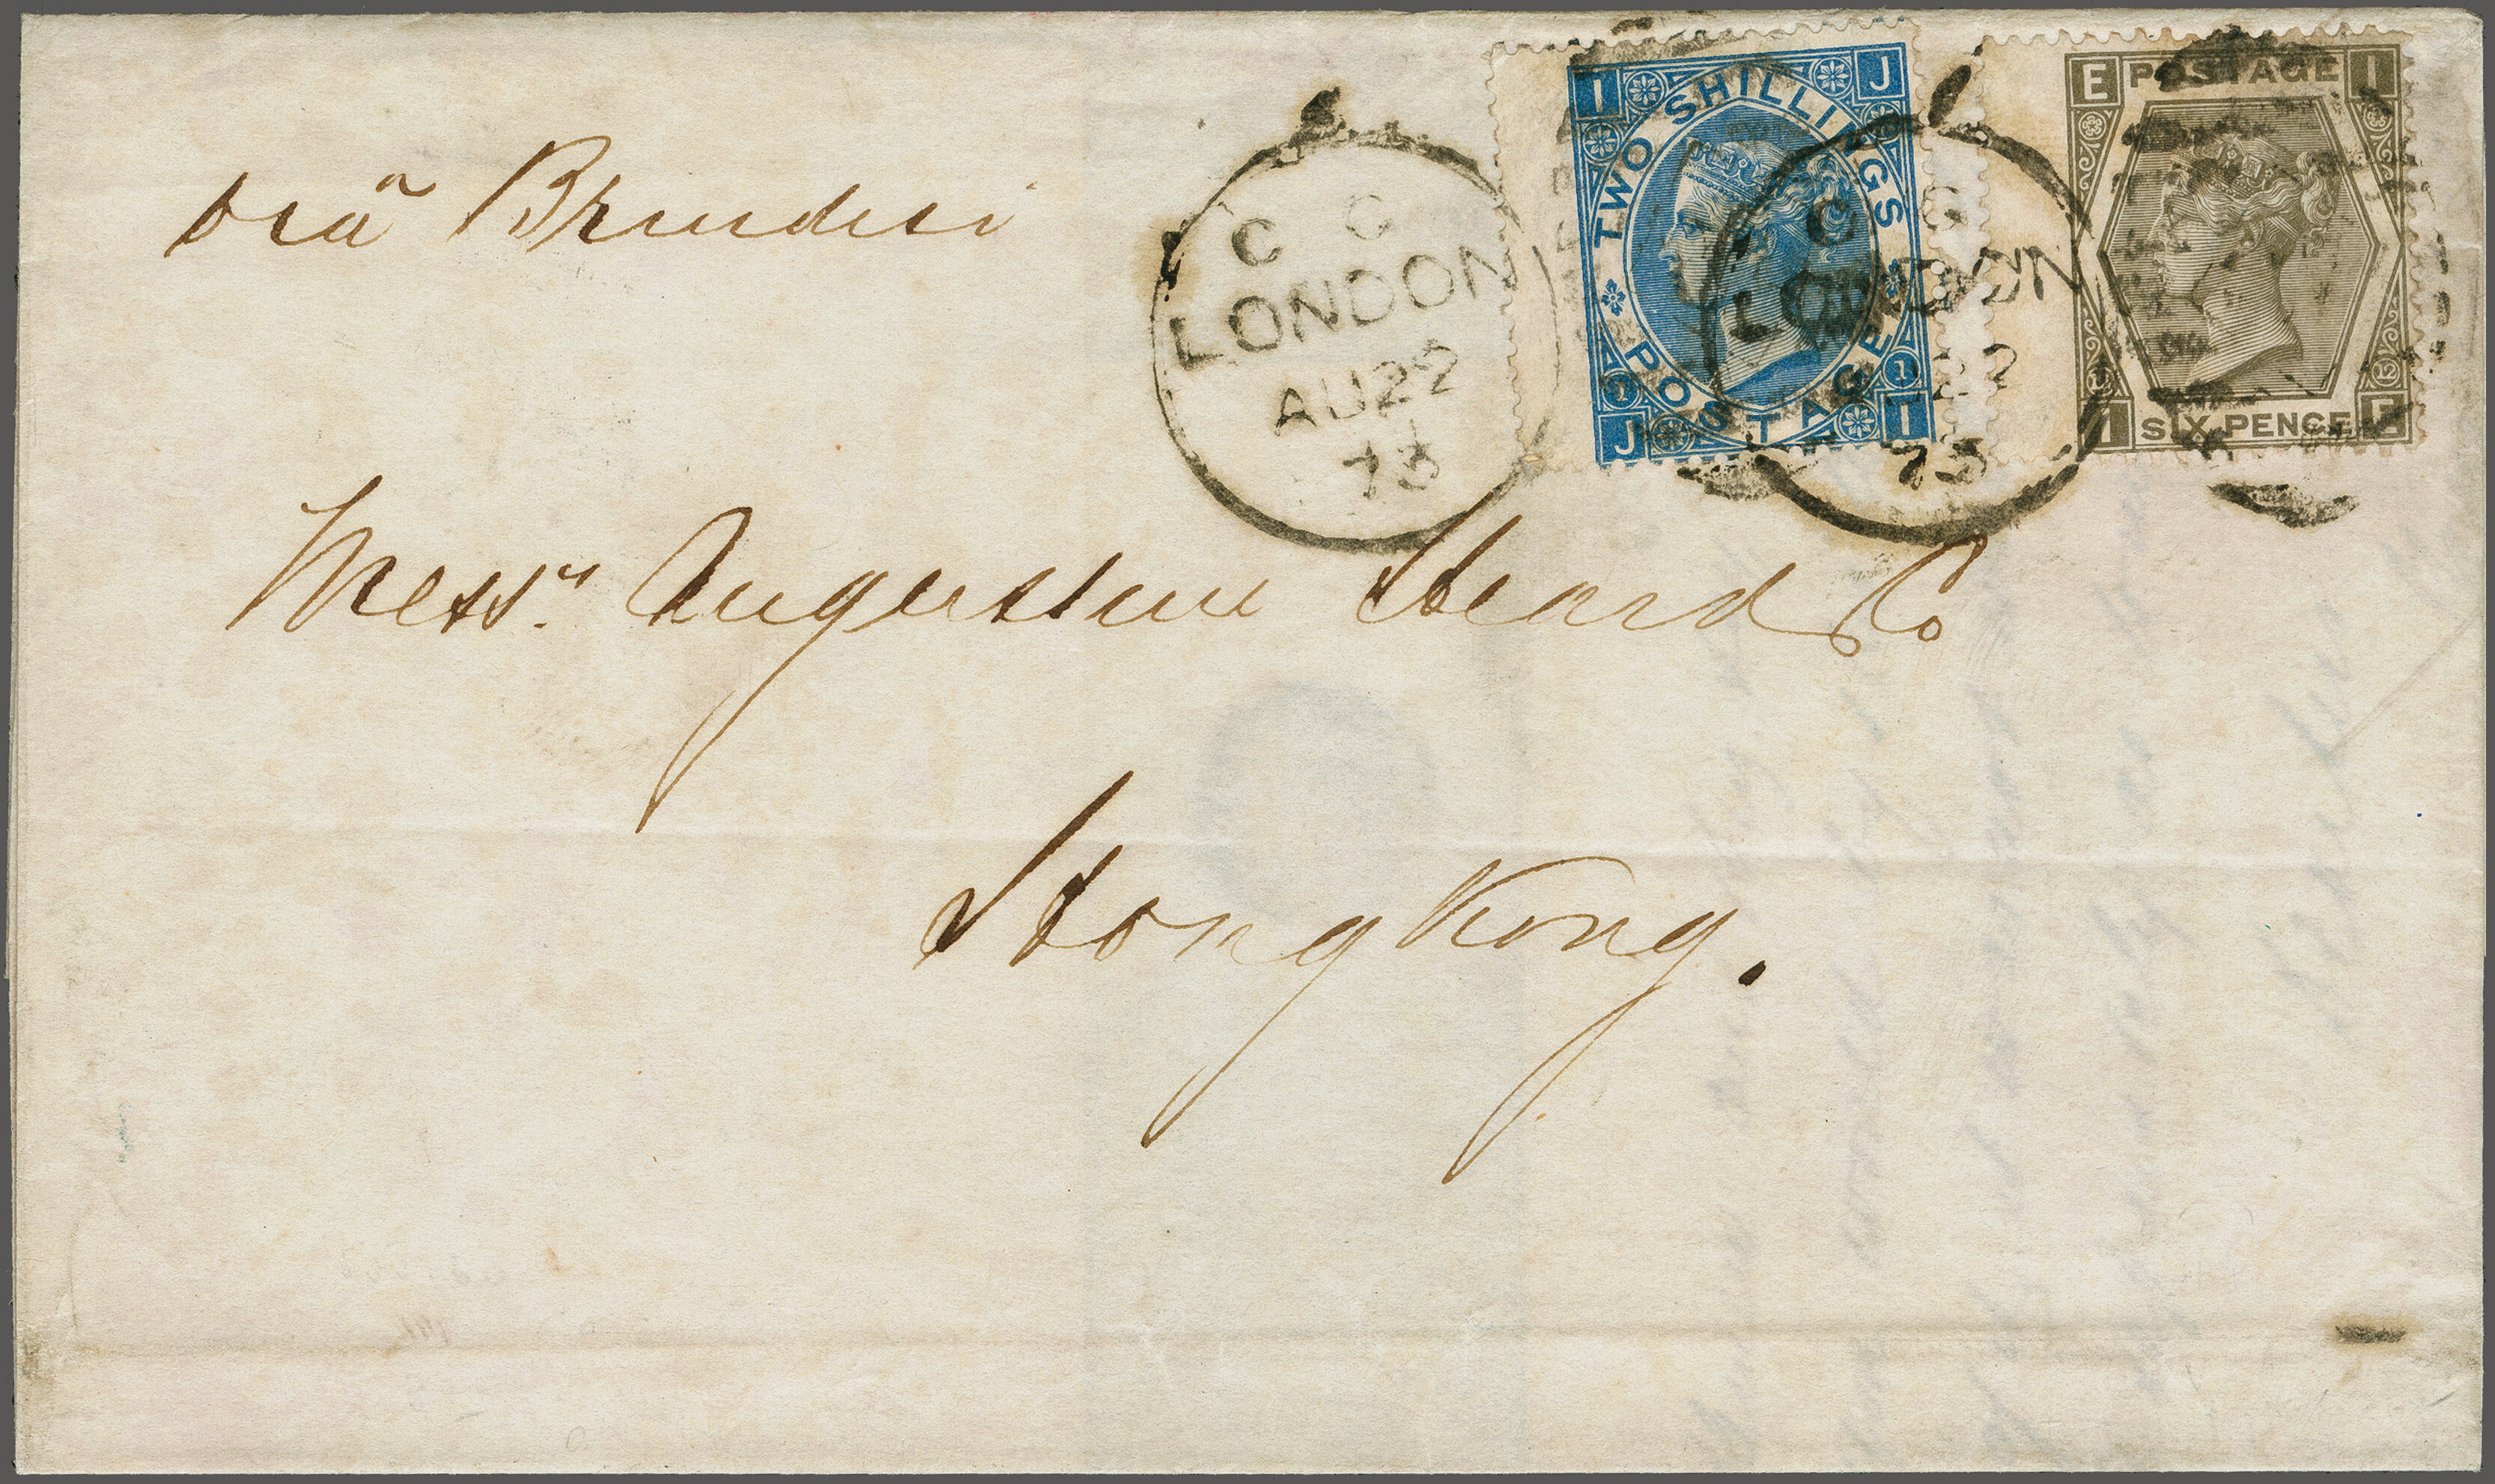 viâ Brindisi
C C
LONDON
AU 22
73
I J
TWO SHILLINGS
POSTAGE
1 1
J I
C C
LONDON
22
73
E POSTAGE I
12 12
I SIX PENCE E
Messrs. Augustine Heard & Co
HongKong.